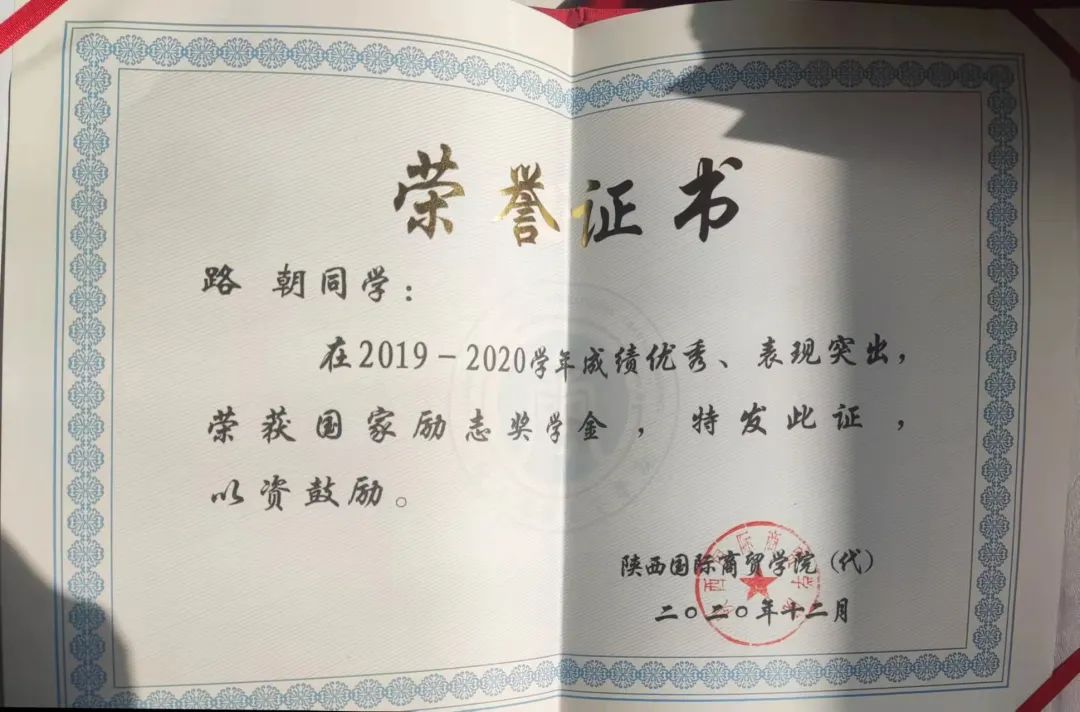 荣誉证书
路 朝同学：
在2019－2020学年成绩优秀、表现突出，
荣获国家励志奖学金，特发此证，
以资鼓励。
陕西国际商贸学院（代）
二〇二〇年十二月